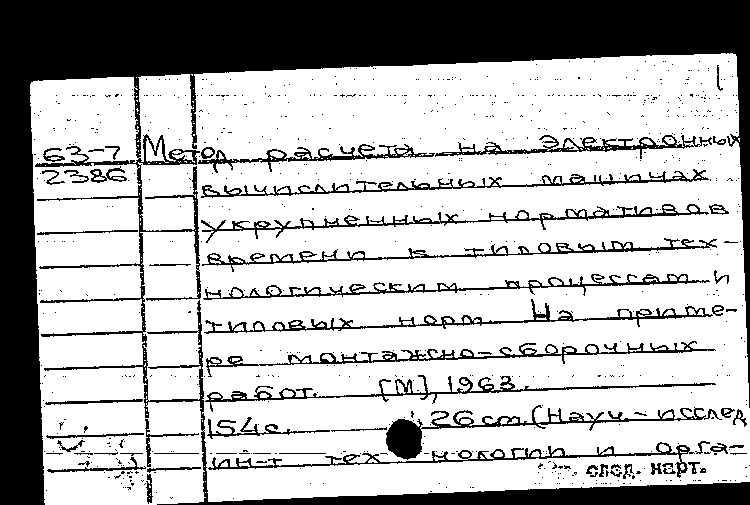 63-7 Метод расчета на электронных
2386 вычислительных машинах
укрупненных нормативов
времени к типовым тех-
нологическим процессам и
типовых норм. На приме-
ре монтажно-сборочных
работ. [М], 1963.
154с. 26 см. (Науч.-исслед.
ин-т технологии и орга-
след. карт.